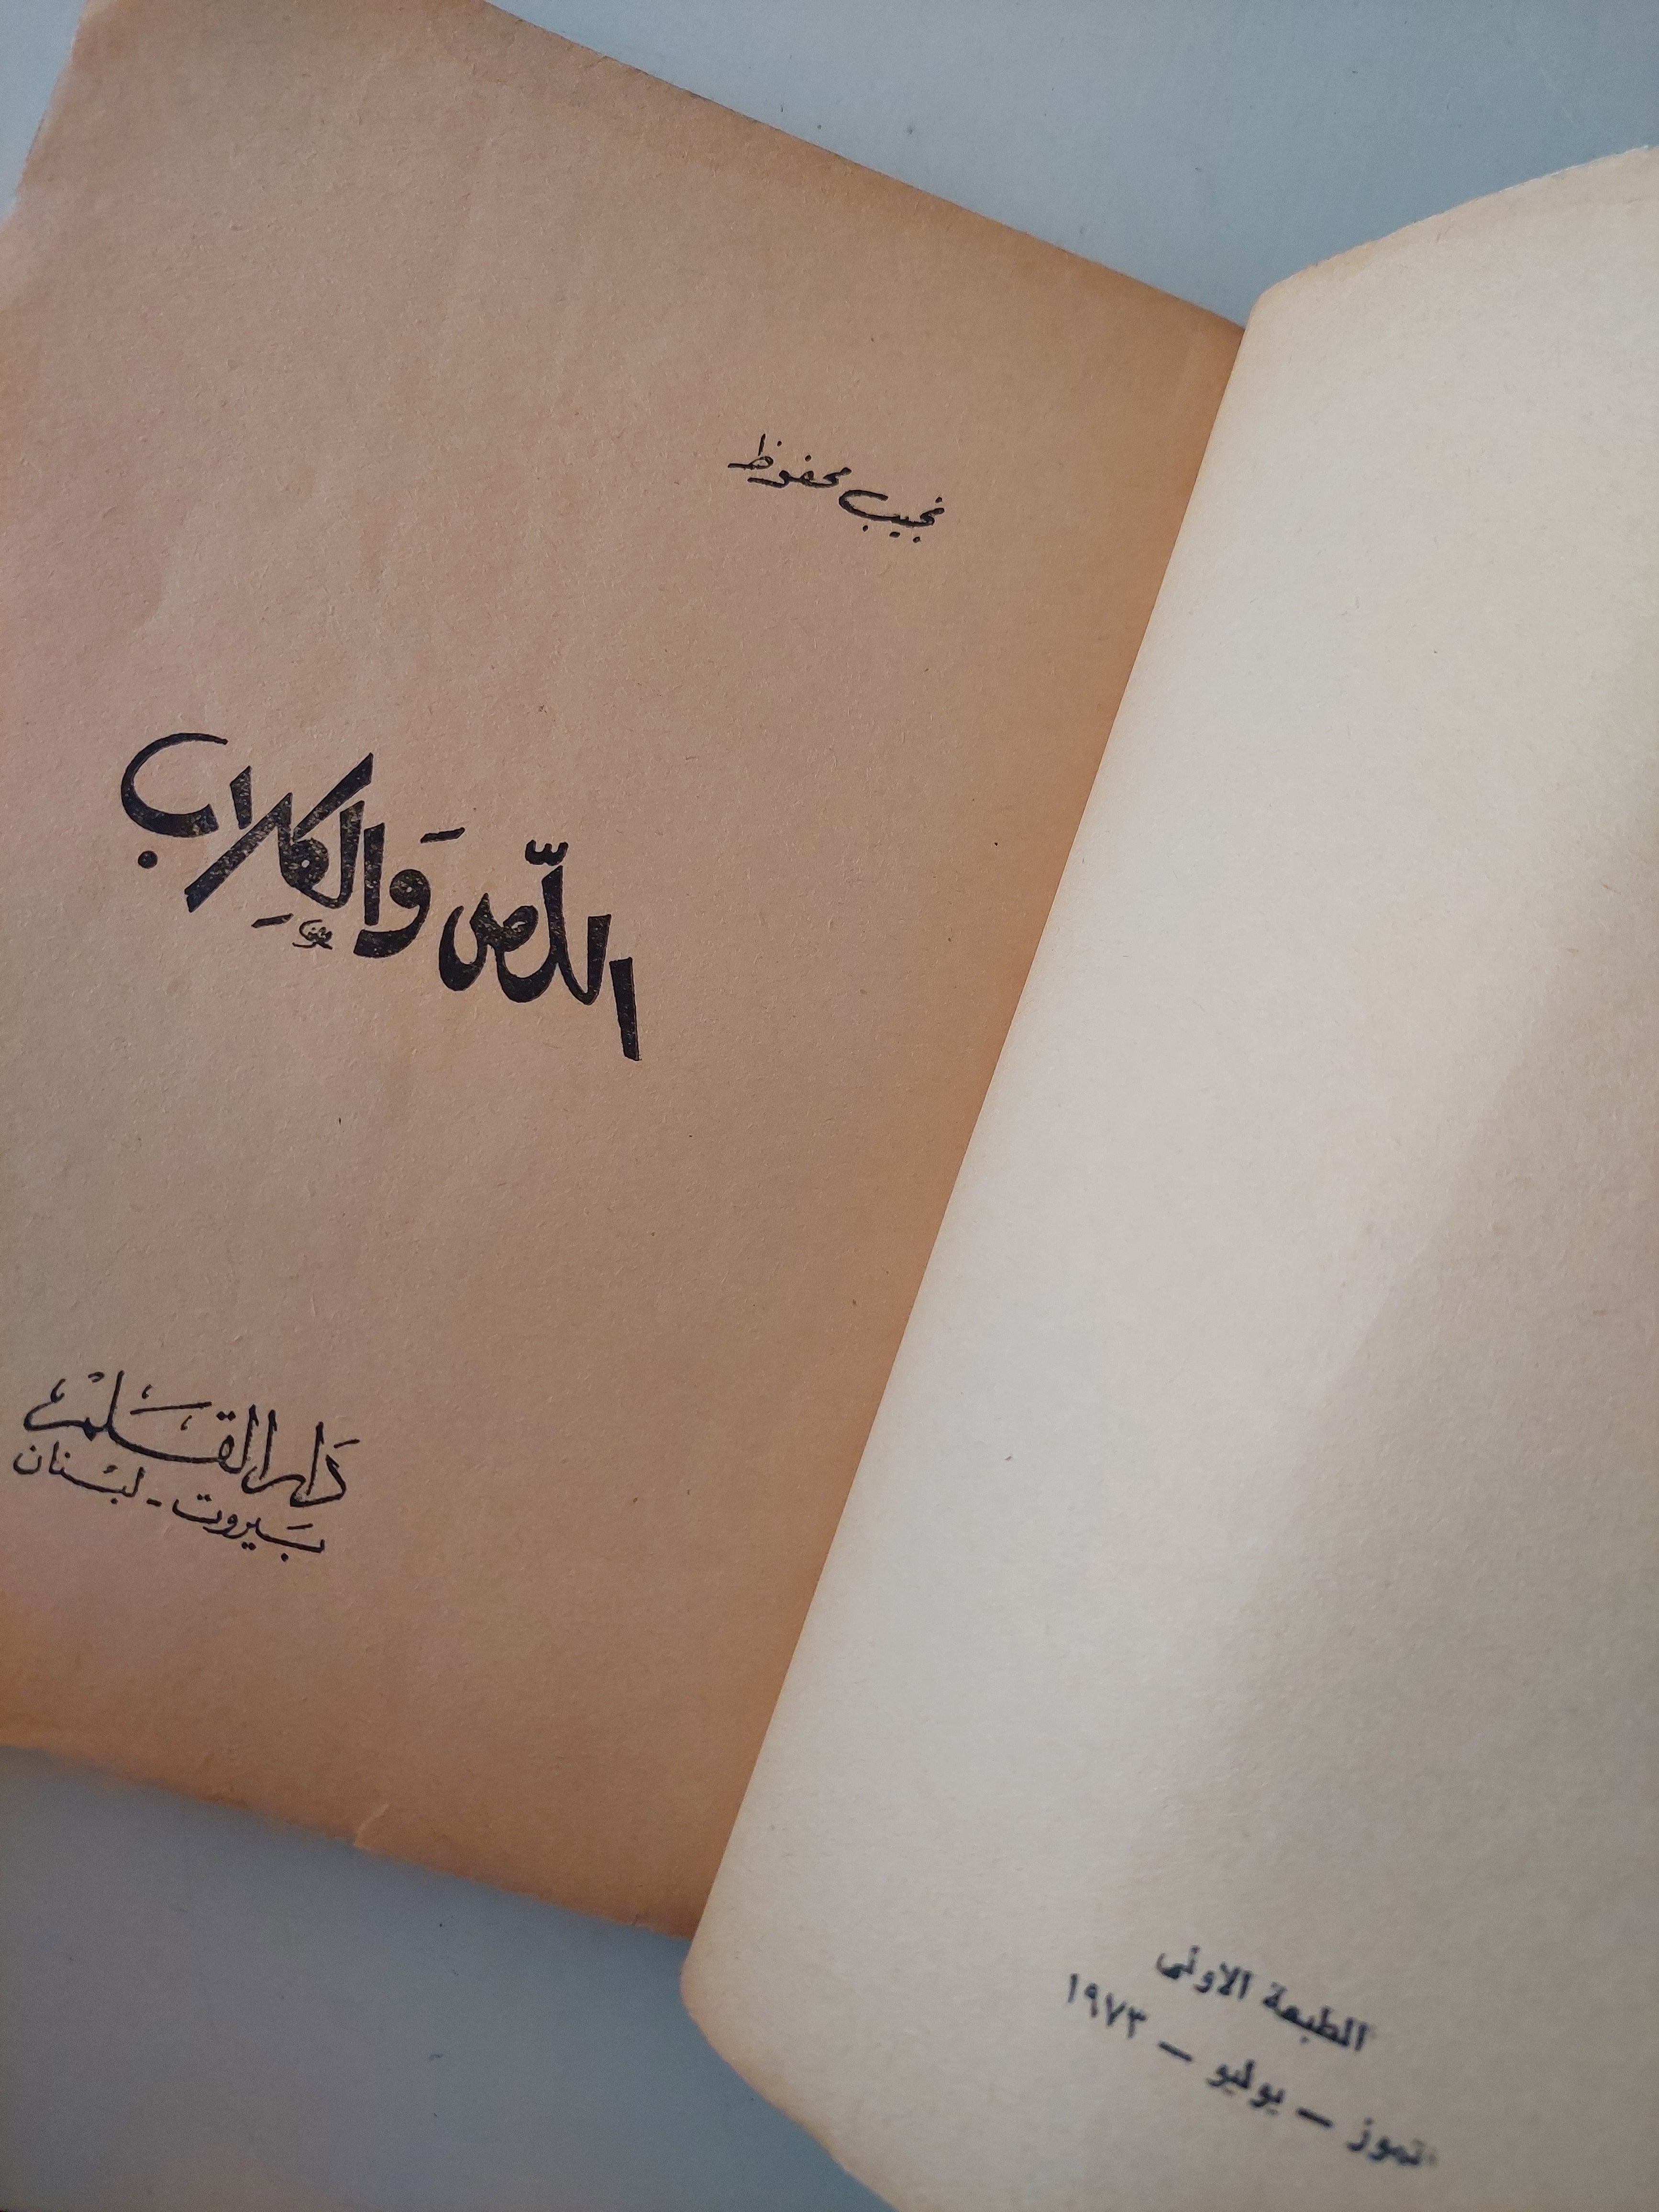 نجيب محفوظ
اللّص وَالكِلاب
دَار القَلم
بَيروت - لبْنان
الطبعة الاولى
تموز — يوليو — ١٩٧٣